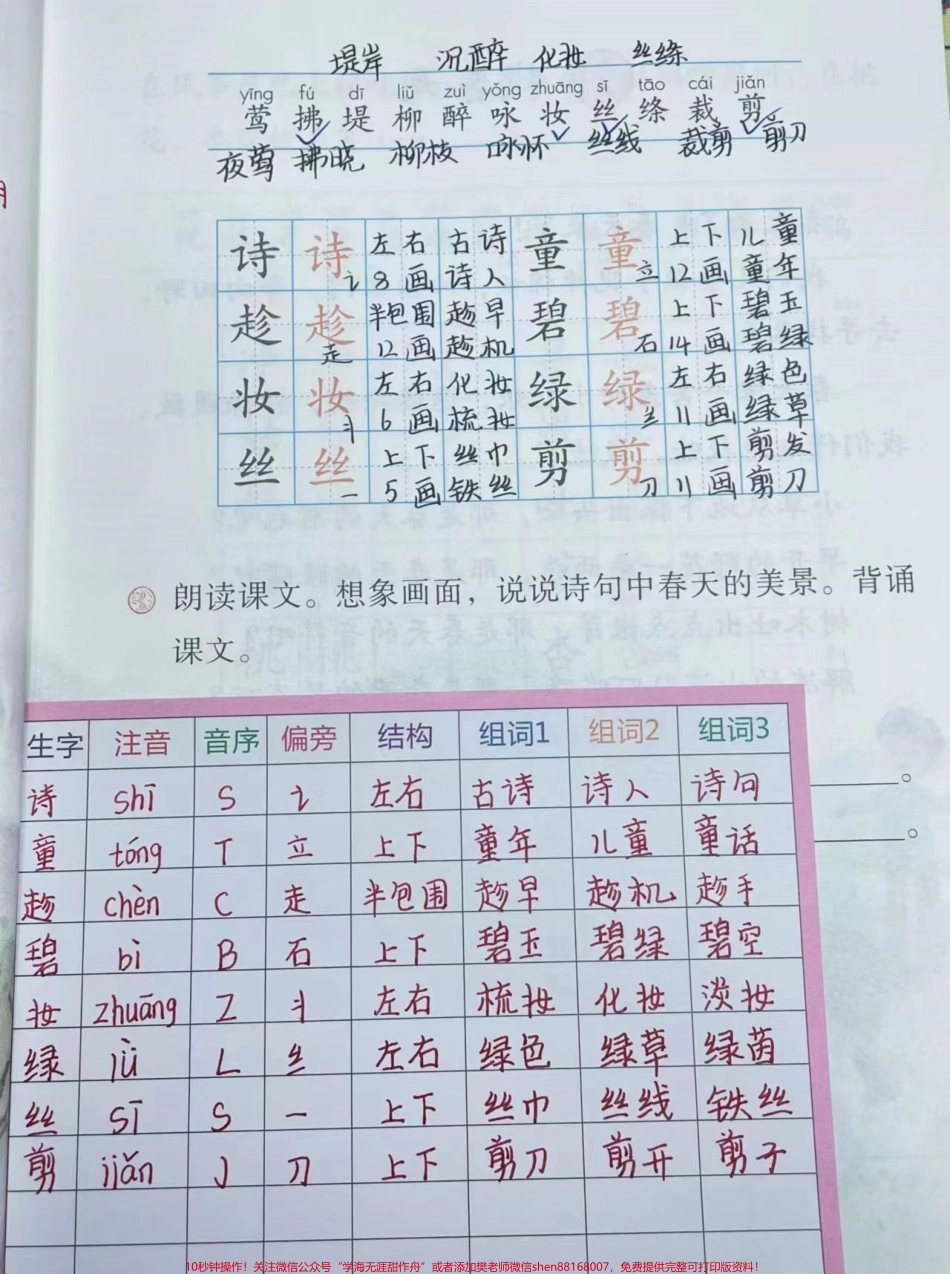 堤岸 沉醉 化妆 丝练
yīng fú dī liǔ zuì yǒng zhuāng sī tāo cái jiǎn
莺 拂 堤 柳 醉 咏 妆 丝 绦 裁 剪
夜莺 拂晓 柳枝 咏怀 丝线 裁剪 剪刀
诗 诗 讠 左右 古诗 童 童 立 上下 儿童
8画 诗人 12画 童年
趁 趁 走 半包围 趁早 碧 碧 石 上下 碧玉
12画 趁机 14画 碧绿
妆 妆 丬 左右 化妆 绿 绿 纟 左右 绿色
6画 梳妆 11画 绿草
丝 丝 一 上下 丝巾 剪 剪 刀 上下 剪发
5画 铁丝 11画 剪刀
朗读课文。想象画面，说说诗句中春天的美景。背诵
课文。
生字 注音 音序 偏旁 结构 组词1 组词2 组词3
诗 shī S 讠 左右 古诗 诗人 诗句
童 tóng T 立 上下 童年 儿童 童话
趁 chèn C 走 半包围 趁早 趁机 趁手
碧 bì B 石 上下 碧玉 碧绿 碧空
妆 zhuāng Z 丬 左右 梳妆 化妆 淡妆
绿 lǜ L 纟 左右 绿色 绿草 绿茵
丝 sī S 一 上下 丝巾 丝线 铁丝
剪 jiǎn J 刀 上下 剪刀 剪开 剪子
10秒钟操作！关注微信公众号“学海无涯甜作舟”或者添加樊老师微信shen88168007，免费提供完整可打印版资料！